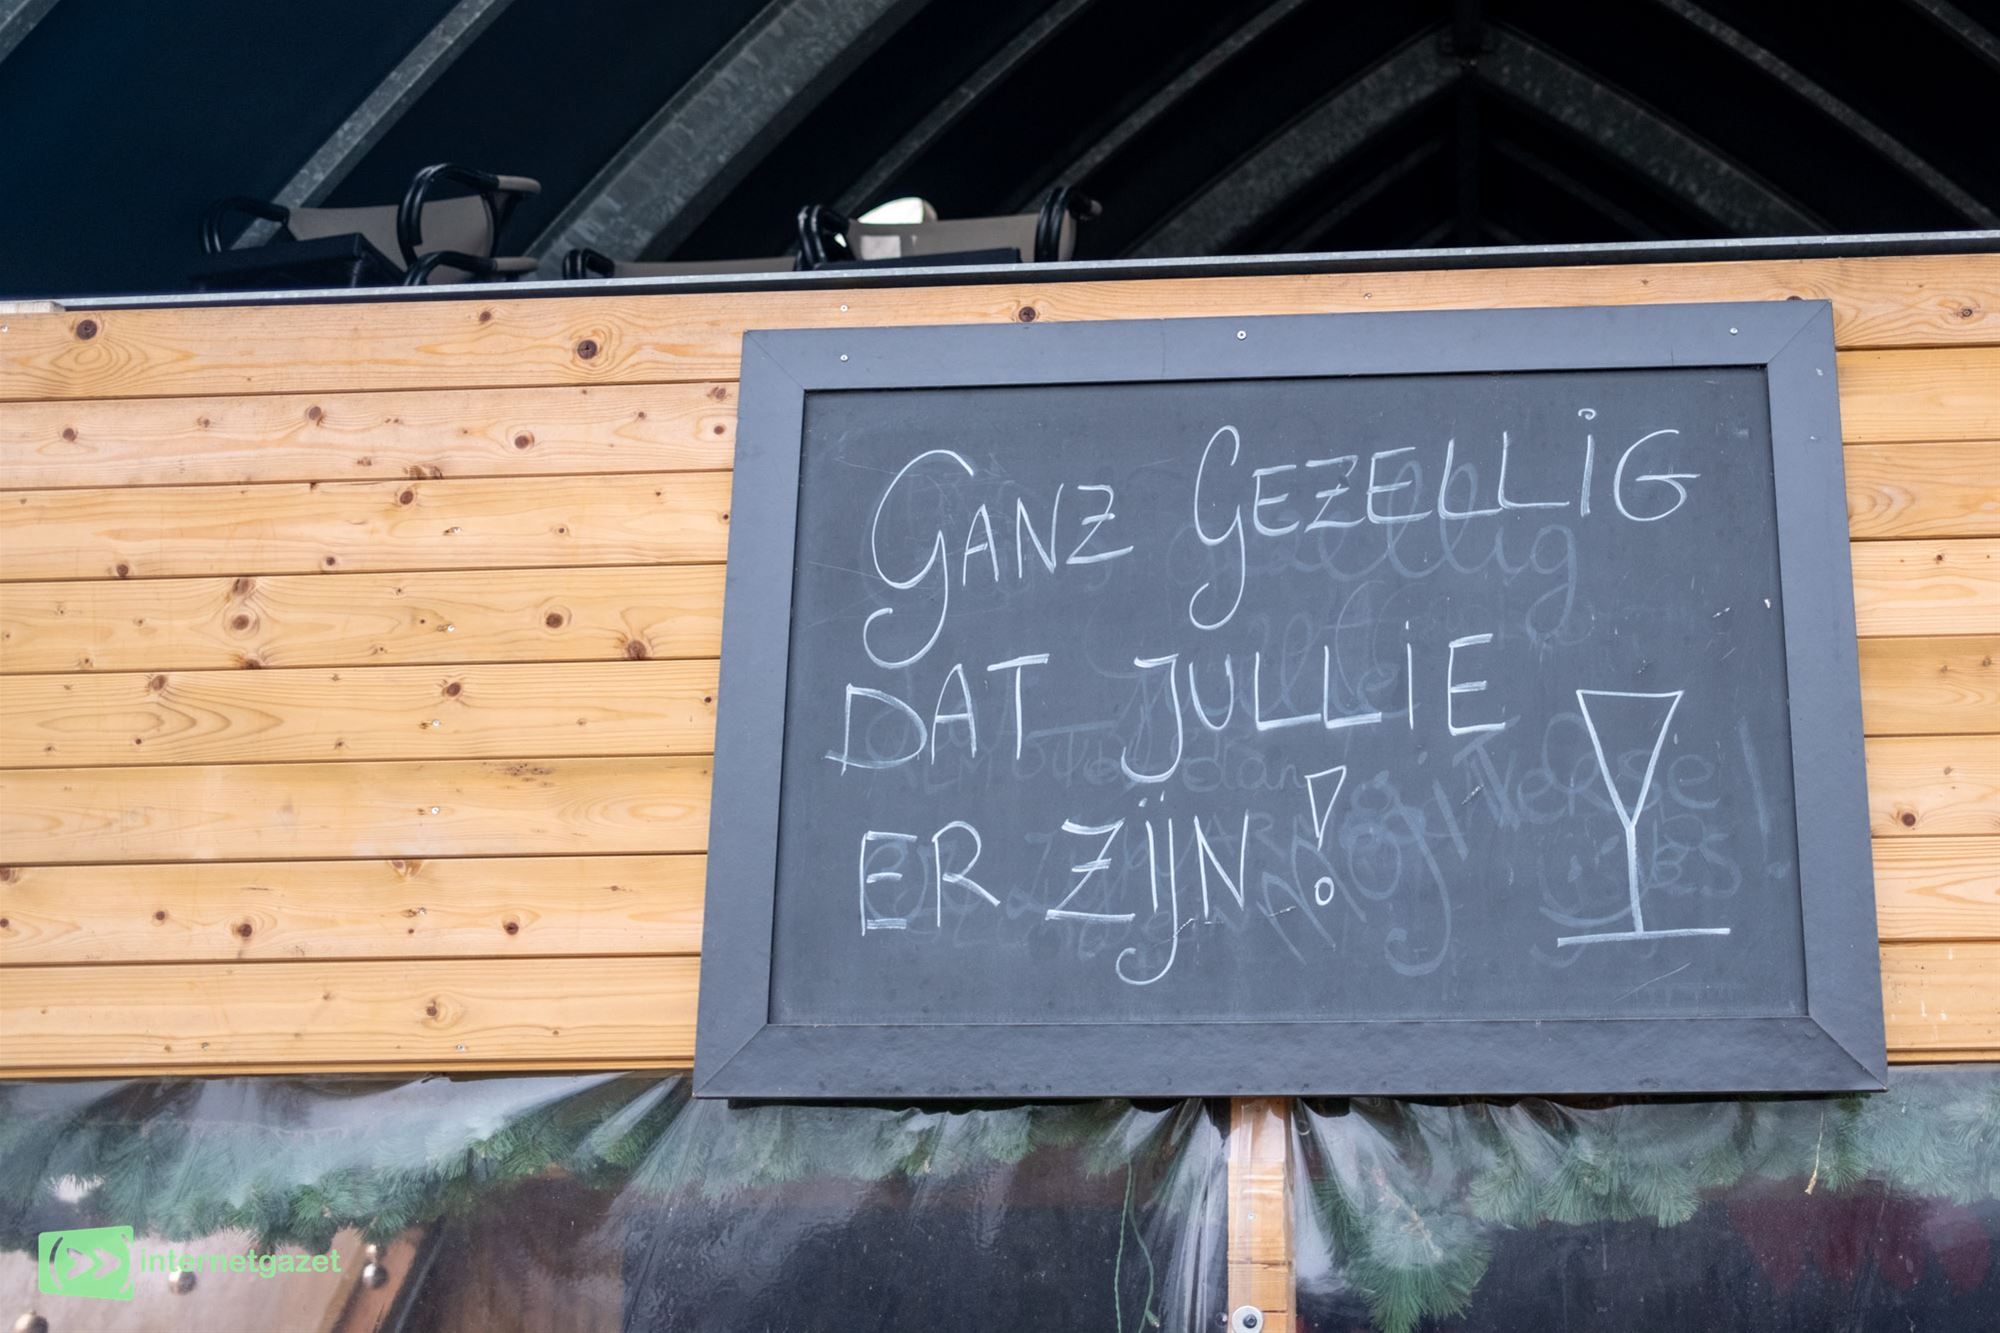 GANZ GEZELLIG
DAT JULLIE
ER ZIJN!
internetgazet